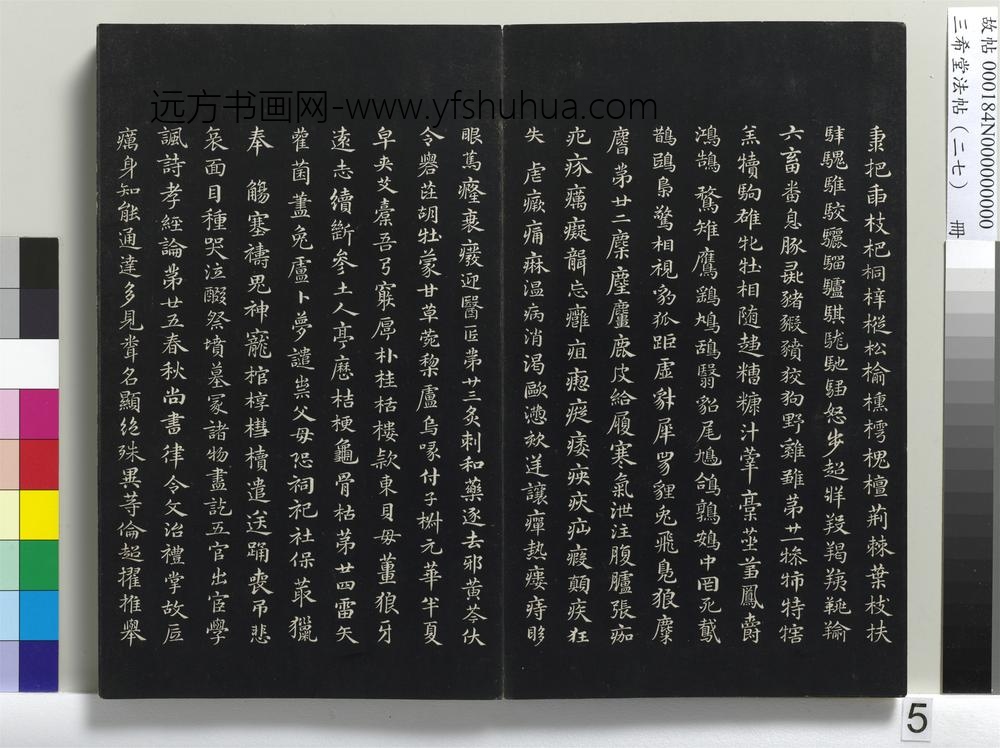 秉把臿枝杷桐梓樅松榆櫄樗槐檀荆棘葉枝扶
騩騅駮驪騮驢騏駹馳驅怒步超羖羯羠羭
六畜番息豚彘豬豭豶狡狗野雞雉苐廿一犙㸬特犗
羔犢駒雄牝牡相随趍糟糠汁莘稾莝蒭鳳爵
鴻鵠鶩雉鷹鷂鳩鴰翳貂尾鳩鴿鶉鴳中罔死鳶
鵲鴟梟驚相視豹狐距虚豺犀兕貍兔飛鳬狼麋
麿苐廿二麇麈麠鹿皮給履寒氣泄注腹臚張痂
疕疥癘癡聾忘癰疽瘛瘲痿疾疝瘕顛疾狂
失瘧瘚痛痳温病消渴歐懣欬逆讓癉熱瘻痔
眼篤癃衰癈迎醫匠苐廿三灸刺和藥逐去邪黄芩伏
令礜茈胡牡蒙甘草菀梨蘆烏喙付子椒元華半夏
皁夾艾橐吾弓窮厚朴桂栝樓款東貝毋薑狼牙
遠志續斷參土人亭歷桔梗龜骨枯苐廿四雷矢
雚菌藎兔盧卜夢譴祟父母恐祠祀社保菆獵
奉 觴塞禱鬼神寵棺椁槥櫝遣送踊喪吊悲
哀面目種哭泣醊祭墳墓冢諸物盡訖五官出宦學
諷詩孝經論苐廿五春秋尚書律令文治禮掌故
癘身知能通達多見聞名顯絶殊異等倫超擢推舉
远方书画网-www.yfshuhua.com
故帖 000184N000000000
三希堂法帖(二七) 冊
5